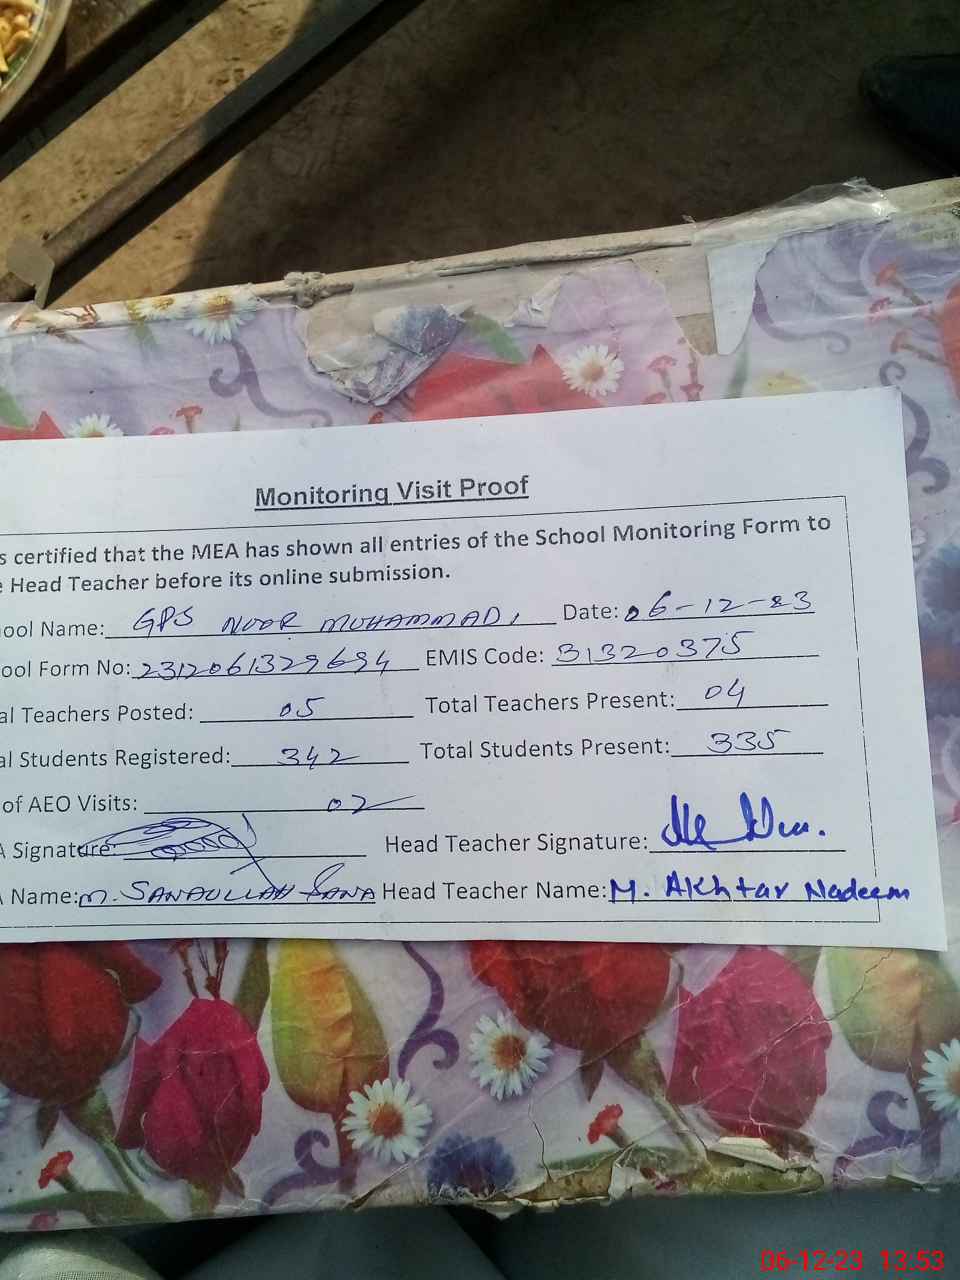 Monitoring Visit Proof
s certified that the MEA has shown all entries of the School Monitoring Form to
e Head Teacher before its online submission.
ool Name: GPS NOOR MUHAMMADI Date: 06-12-23
ool Form No: 2312061329694 EMIS Code: 31320375
al Teachers Posted: 05 Total Teachers Present: 04
al Students Registered: 342 Total Students Present: 335
of AEO Visits: 02
A Signature: Head Teacher Signature:
A Name: M. SANAULLAH RANA Head Teacher Name: M. Akhtar Nadeem
06-12-23 13.53